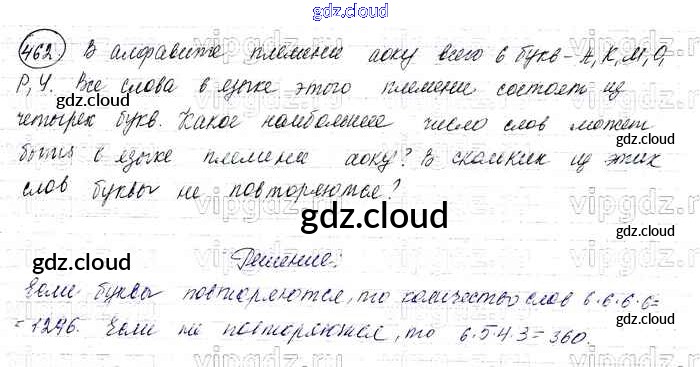 gdz.cloud
462 В алфавите племени аоку всего 6 букв - А, К, М, О,
Р, У. Все слова в языке этого племени состоят из
четырех букв. Какое наибольшее число слов может
быть в языке племени аоку? В скольких из этих
слов буквы не повторяются?
gdz.cloud
Решение:
Если буквы повторяются, то количество слов 6·6·6·6=
=1296. Если не повторяются, то 6·5·4·3=360.
gdz.cloud
gdz.cloud
gdz.cloud
gdz.cloud
gdz.cloud
vipgdz
vipgdz